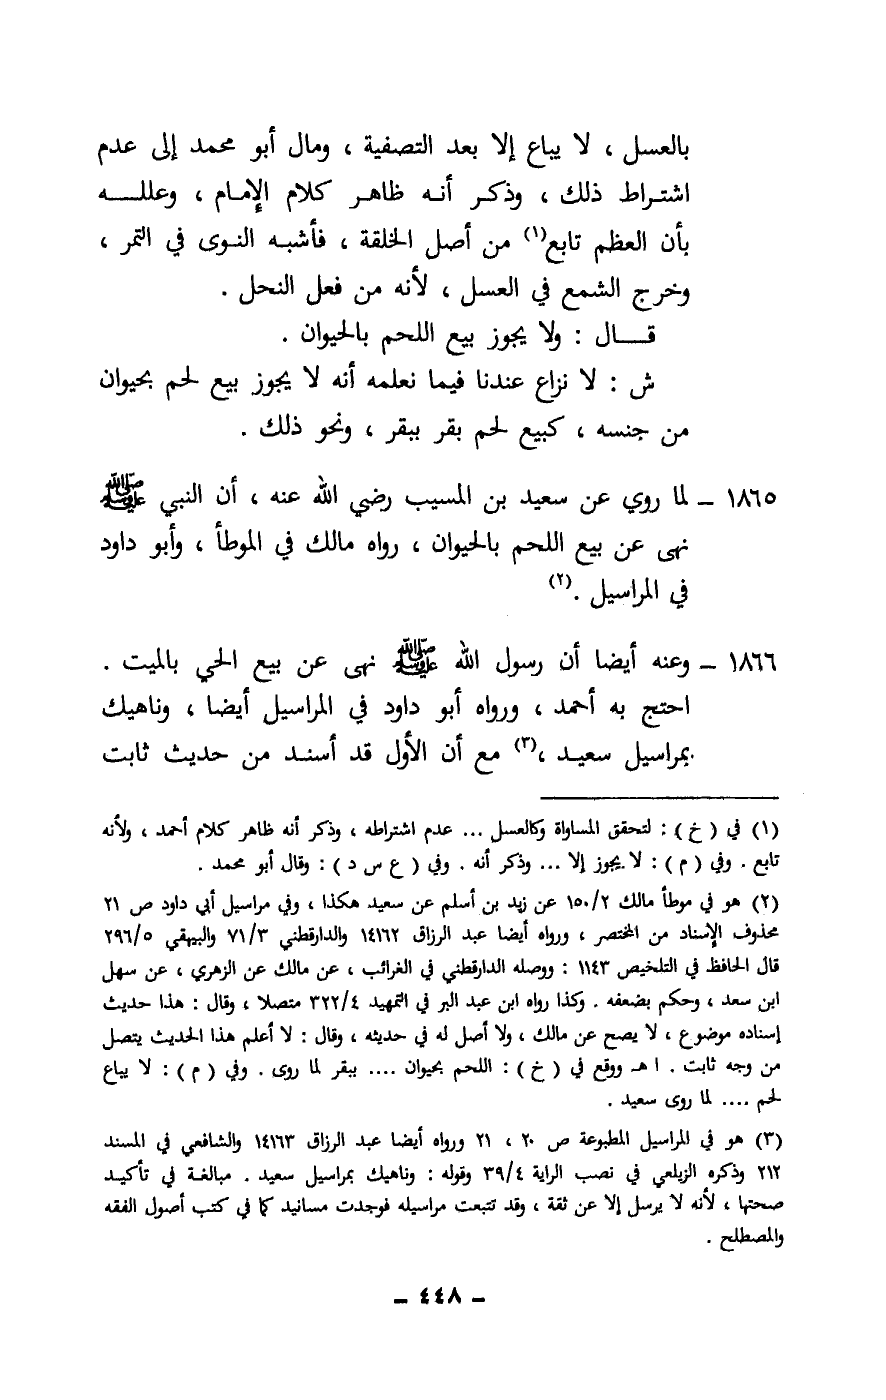 بالعسل ، لا يباع إلا بعد التصفية ، ومال أبو محمد إلى عدم
اشتراط ذلك ، وذكر أنه ظاهر كلام الإمام ، وعلله
بأن العظم تابع(١) من أصل الخلقة ، فأشبه النوى في التمر ،
وخرج الشمع في العسل ، لأنه من فعل النحل .
قال : ولا يجوز بيع اللحم بالحيوان .
ش : لا نزاع عندنا فيما نعلمه أنه لا يجوز بيع لحم بحيوان
من جنسه ، كبيع لحم بقر ببقر ، ونحو ذلك .
١٨٦٥ – لما روي عن سعيد بن المسيب رضي الله عنه ، أن النبي ﷺ
نهى عن بيع اللحم بالحيوان ، رواه مالك في الموطأ ، وأبو داود
في المراسيل .(٢)
١٨٦٦ – وعنه أيضا أن رسول الله ﷺ نهى عن بيع الحي بالميت .
احتج به أحمد ، ورواه أبو داود في المراسيل أيضا ، وناهيك
بمراسيل سعيد ،(٣) مع أن الأول قد أسند من حديث ثابت
(١) في ( خ ) : لتحقق المساواة وكالعسل ... عدم اشتراطه ، وذكر أنه ظاهر كلام أحمد ، ولأنه
تابع . وفي ( م ) : لا يجوز إلا ... وذكر أنه . وفي ( ع س د ) : وقال أبو محمد .
(٢) هو في موطأ مالك ١٥٠/٢ عن زيد بن أسلم عن سعيد هكذا ، وفي مراسيل أبي داود ص ٢١
محذوف الإسناد من المختصر ، ورواه أيضا عبد الرزاق ١٤١٦٢ والدارقطني ٧١/٣ والبيهقي ٢٩٦/٥
قال الحافظ في التلخيص ١١٤٣ : ووصله الدارقطني في الغرائب ، عن مالك عن الزهري ، عن سهل
ابن سعد ، وحكم بضعفه . وكذا رواه ابن عبد البر في التمهيد ٣٢٢/٤ متصلا ، وقال : هذا حديث
إسناده موضوع ، لا يصح عن مالك ، ولا أصل له في حديثه ، وقال : لا أعلم هذا الحديث يتصل
من وجه ثابت . ا هـ ووقع في ( خ ) : اللحم بحيوان .... ببقر لما روى . وفي ( م ) : لا يباع
لحم .... لما روى سعيد .
(٣) هو في المراسيل المطبوعة ص ٢٠ ، ٢١ ورواه أيضا عبد الرزاق ١٤١٦٣ والشافعي في المسند
٢١٢ وذكره الزيلعي في نصب الراية ٣٩/٤ وقوله : وناهيك بمراسيل سعيد . مبالغة في تأكيد
صحتها ، لأنه لا يرسل إلا عن ثقة ، وقد تتبعت مراسيله فوجدت مسانيد كما في كتب أصول الفقه
والمصطلح .
– ٤٤٨ –